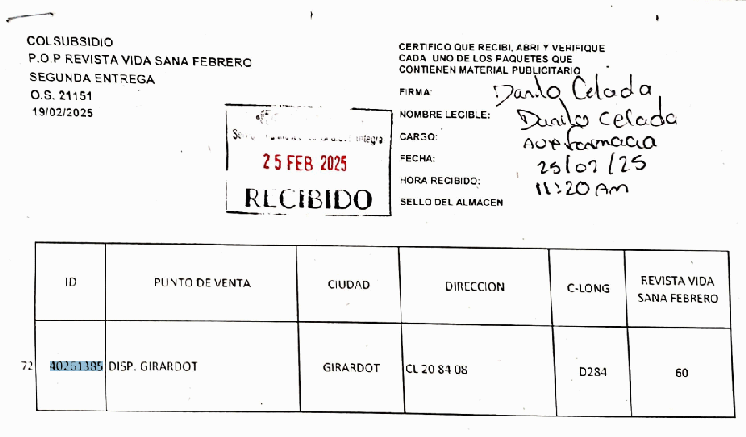 COLSUBSIDIO
P.O.P REVISTA VIDA SANA FEBRERO
SEGUNDA ENTREGA
O.S. 21151
19/02/2025
CERTIFICO QUE RECIBI, ABRI Y VERIFIQUE
CADA UNO DE LOS PAQUETES QUE
CONTIENEN MATERIAL PUBLICITARIO
FIRMA: Danilo Celada
NOMBRE LEGIBLE: Danilo Celada
CARGO:
FECHA: 25/02/25
HORA RECIBIDO: 11:20 AM
SELLO DEL ALMACEN
25 FEB 2025
RECIBIDO
ID PUNTO DE VENTA CIUDAD DIRECCION C-LONG REVISTA VIDA SANA FEBRERO
72 40251385 DISP. GIRARDOT GIRARDOT CL 20 84 08 D284 60